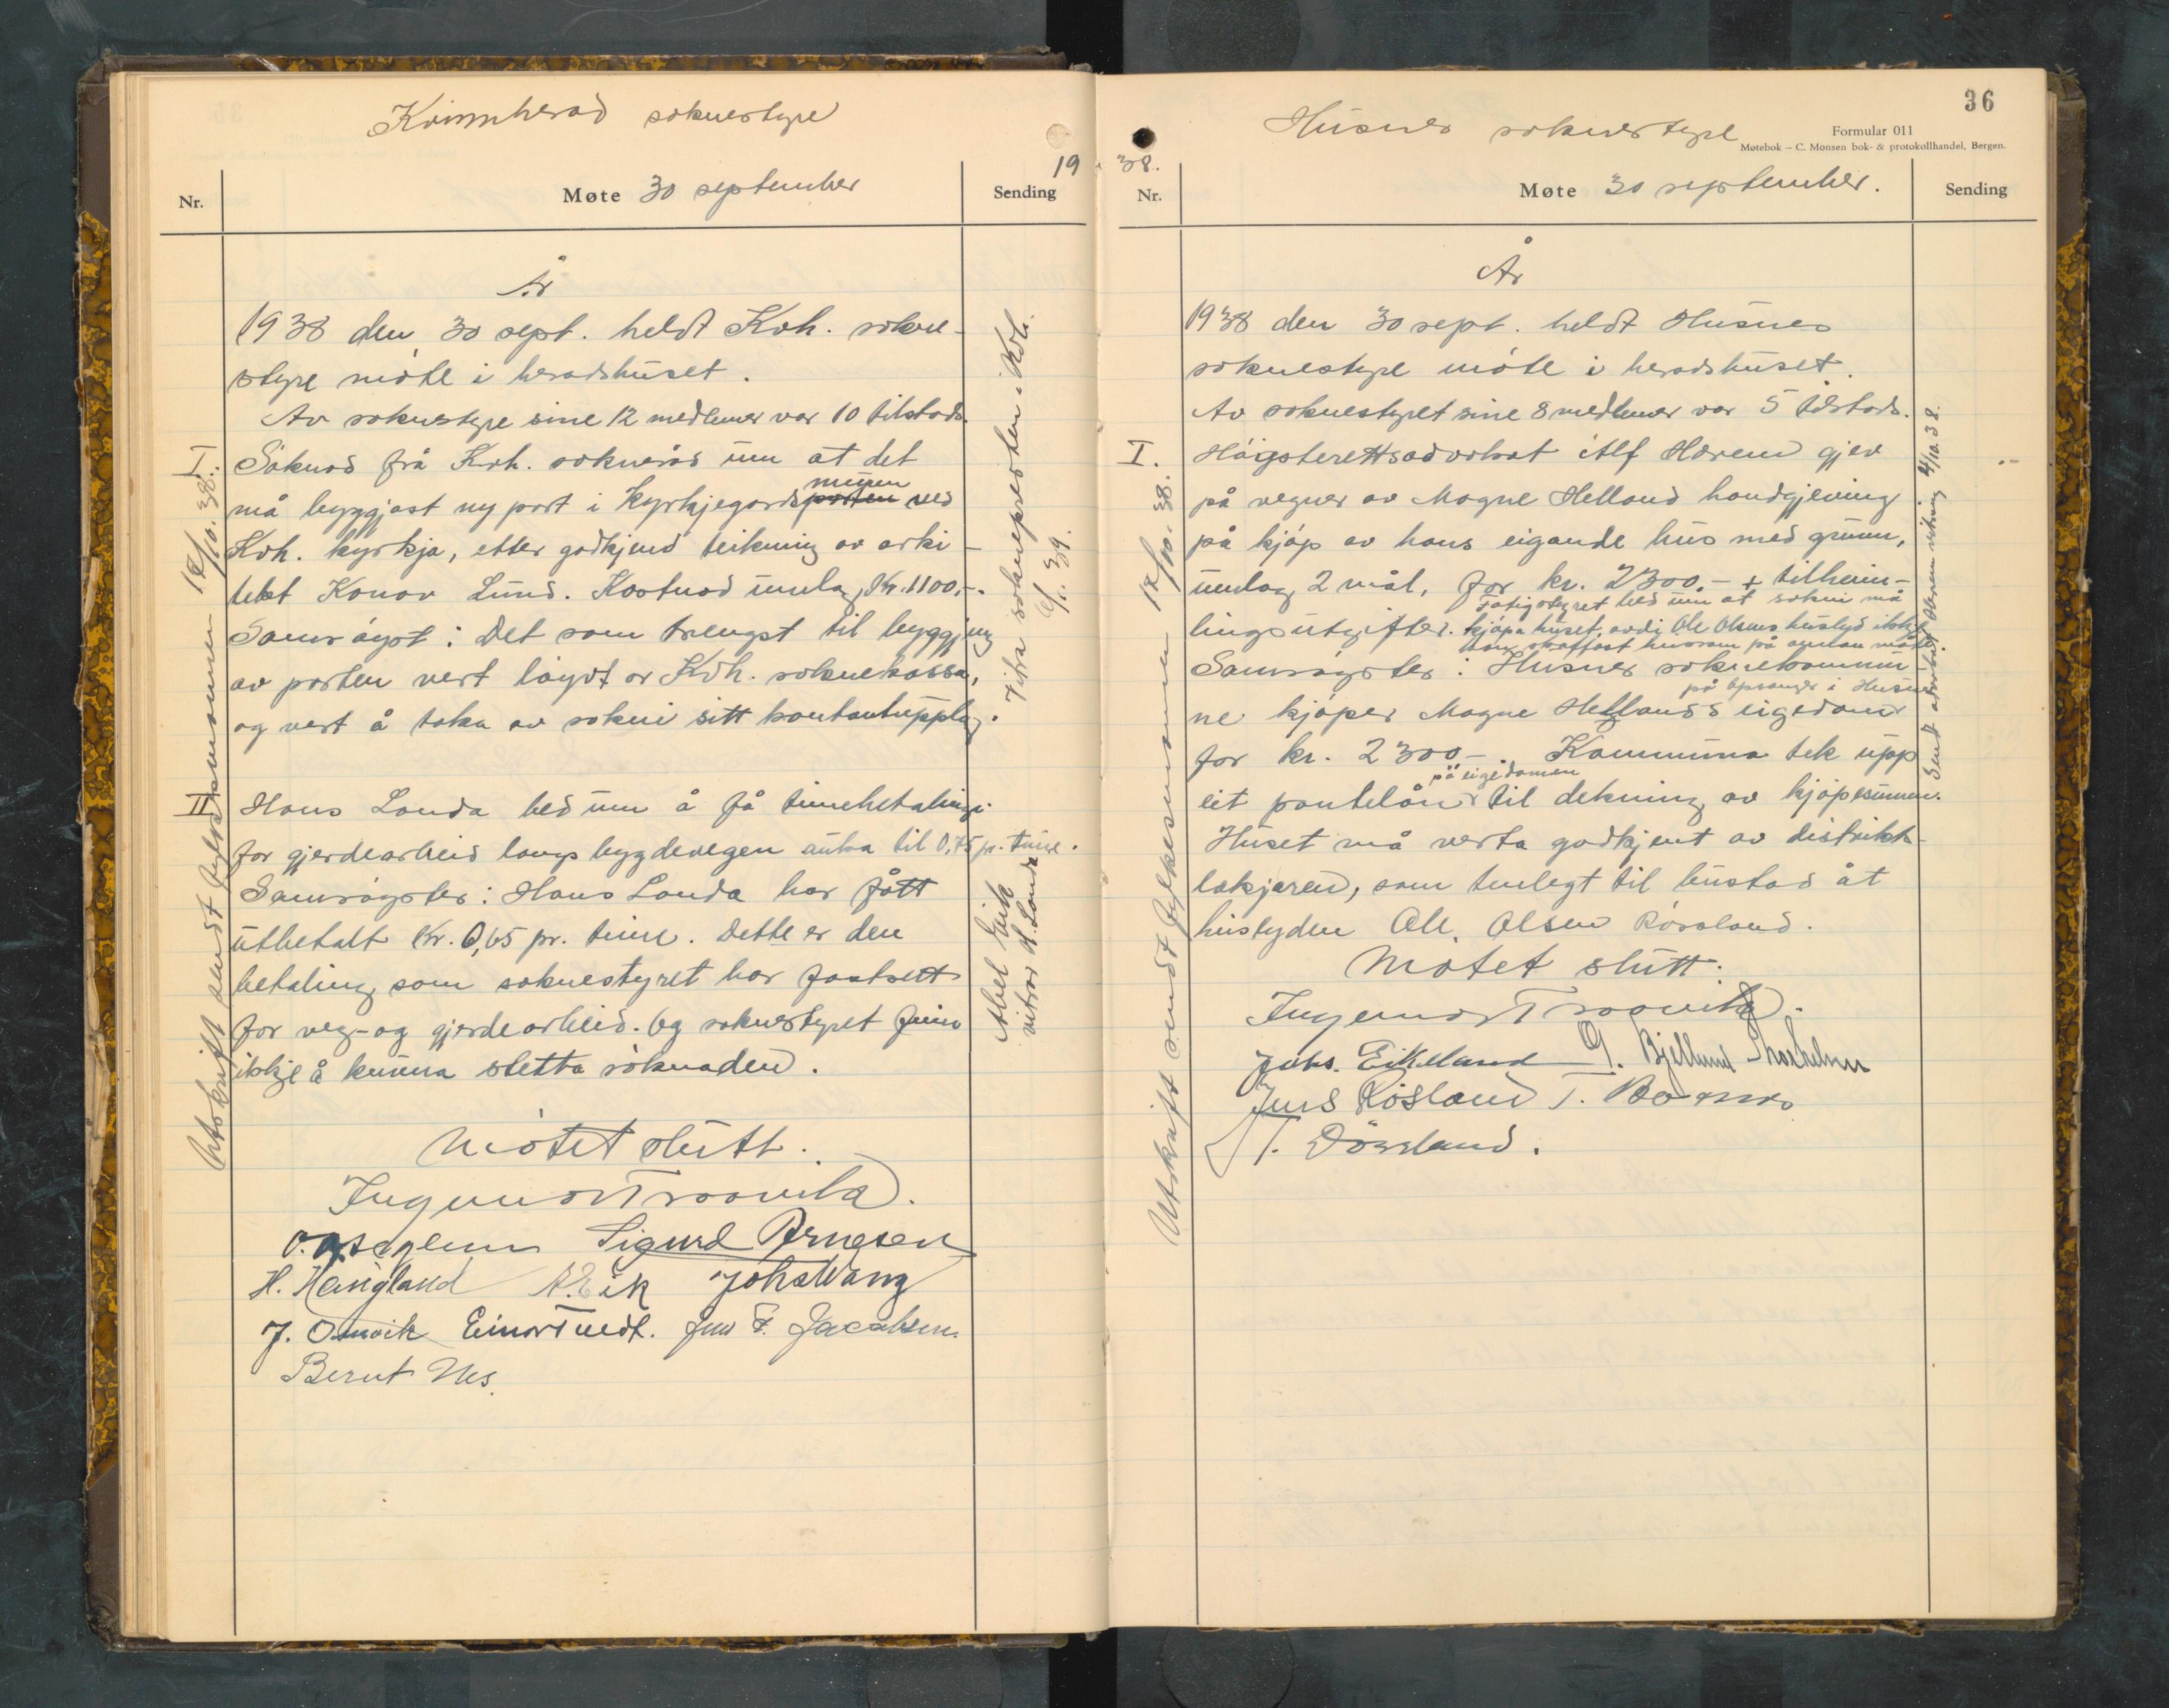 Kvinnherad soknestyre
19
Nr.
Møte 30 september
Sending
År
1938 den 30 sept. heldt Kvh. sokne-
styre møte i heradshuset.
Av soknestyre sine 12 medlemer var 10 tilstads.
I.
Søknad frå Kvh. sokneråd um at det
må byggjast ny port i kyrkjegardsporten muren ved
Kvh. kyrkja, etter godkjend teikning av arki-
tekt Konow Lund. Kostnad umlag Kr. 1100,-.
Samrøyst: Det som trengst til byggjing
av porten vert løyvt or Kvh. soknekassa,
og vert å taka av sokni sitt kontantupplag.
II
Hans Landa bed um å få timebetalingi
for gjerdearbeid langs bygdevegen auka til 0,75 pr. time.
Samrøystes: Hans Landa har fått
utbetalt Kr. 0,65 pr. time. Dette er den
betaling som soknestyret har fastsett
for veg- og gjerdearbeid. Og soknestyret finn
ikkje å kunna stetta søknaden.
Møtet slutt.
Ingemar Traavik.
Sigurd Arnesen
H. Haugland A. Eik Johs Wang
J. Omvik Einar Tvedt. Jens F. Jacobsen.
Bernt Nes.
Utskrift sendt fylkesmannen 12/10.38.
Vitra soknepresten i Kvh.
6/1.39.
Abel Eik
vitrar H. Landa
36
Husnes soknestyre
Formular 011
Møtebok – C. Monsen bok- & protokollhandel, Bergen.
38.
Nr.
Møte 30 september.
Sending
År
1938 den 30 sept. heldt Husnes
soknestyre møte i heradshuset.
Av soknestyret sine 8 medlemer var 5 tilstads.
I.
Høgsterettsadvokat Alf Hæren gjev
på vegner av Magne Helland handgjeving
på kjøp av hans eigande hus med grunn,
umlag 2 mål, for kr. 2300.- + tilheim-
Fatigstyret bed um at sokni må
lingsutgifter. kjøpa huset, avdi Ole Olsens huslyd ikkje
kan skaffast husrom på annan måte
Samrøystes: Husnes soknekommu-
på Opsanger i Husnes
ne kjøper Magne Hellands eigedom
for kr. 2300.-. Kommuna tek upp
på eigedomen
eit pantelån til dekning av kjøpesummen.
Huset må verta godkjent av distrikts-
lækjaren, som tenlegt til bustad åt
huslyden Ole Olsen Røssland.
Møtet slutt.
Ingemar Traavik.
Johs. Eikeland G. Bjelland
Jens Røsland T.
T. Døssland.
Utskrift sendt fylkesmannen 12/10.38.
Sendt advokat Hæren vitring 4/10.38.